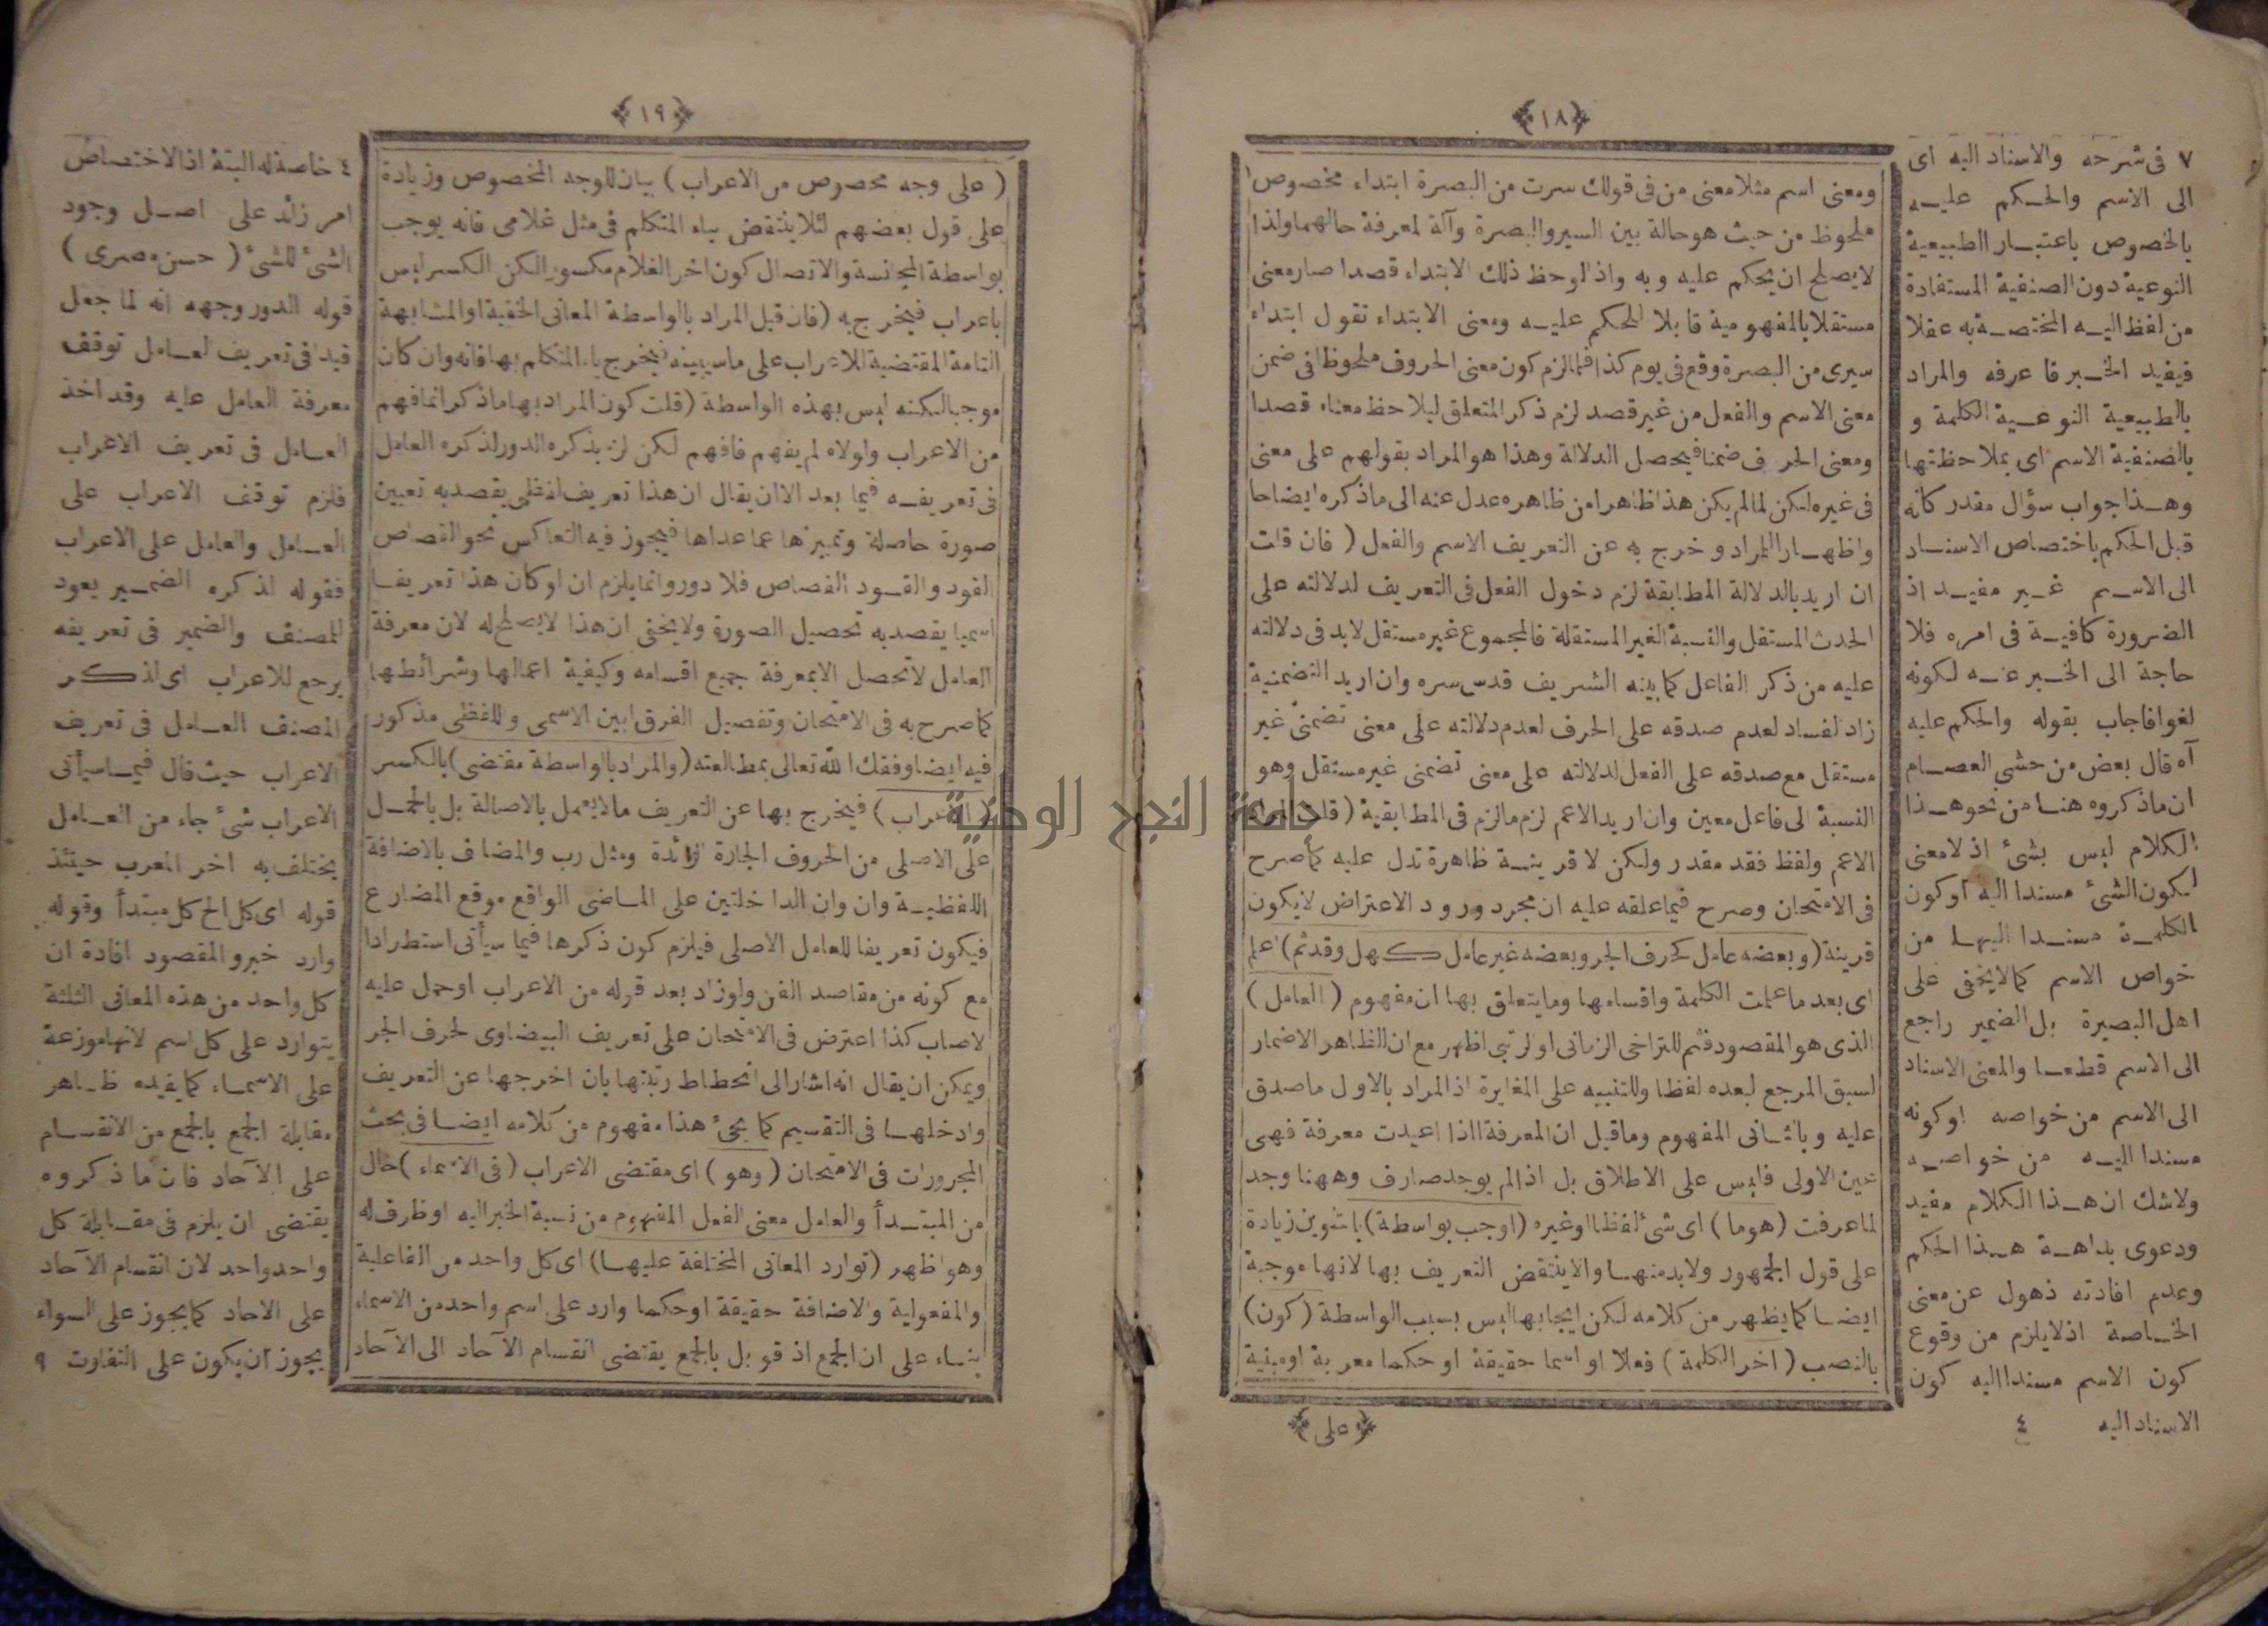 ﴿١٨﴾
ومعنى اسم مثلا معنى من فى قولك سرت من البصرة ابتداء مخصوص
ملحوظ من حيث هو حالة بين السير والبصرة وآلة لمعرفة حالهما ولذا
لا يصلح ان يحكم عليه وبه واذا لوحظ ذلك الابتداء قصدا صار معنى
مستقلا بالمفهومية قابلا للحكم عليه ومعنى الابتداء تقول ابتداء
سيرى من البصرة وقع فى يوم كذا فما لزم كون معنى الحروف ملحوظا فى ضمن
معنى الاسم والفعل من غير قصد لزم ذكر المتعلق ليلاحظ معناه قصدا
ومعنى الحرف ضمنا فيحصل الدلالة وهذا هو المراد بقولهم على معنى
فى غيره لكن لما لم يكن هذا ظاهرا من ظاهره عدل عنه الى ما ذكره ايضاحا
واظهارا للمراد وخرج به عن التعريف الاسم والفعل ( فان قلت
ان اريد بالدلالة المطابقة لزم دخول الفعل فى التعريف لدلالته على
الحدث المستقل والنسبة الغير المستقلة فالمجموع غير مستقل لابد فى دلالته
عليه من ذكر الفاعل كما بينه الشريف قدس سره وان اريد التضمنية
زاد لفساد لعدم صدقه على الحرف لعدم دلالته على معنى تضمنى غير
مستقل مع صدقه على الفعل لدلالته على معنى تضمنى غير مستقل وهو
النسبة الى فاعل معين وان اريد الاعم لزم ما لزم فى المطابقية ( قلت المراد
الاعم ولفظ فقد مقدر ولكن لا قرينة ظاهرة تدل عليه كما صرح
فى الامتحان وصرح فيما علقه عليه ان مجرد ورود الاعتراض لا يكون
قرينة ( وبعضه عامل كحرف الجر وبعضه غير عامل كهل وقد ثم ) اعلم
اى بعد ما علمت الكلمة واقسامها وما يتعلق بها ان مفهوم ( العامل )
الذى هو المقصود فثم للتراخى الزمانى او لرتبى اظهر مع ان الظاهر الاضمار
لسبق المرجع لبعده لفظا وللتنبيه على المغايرة اذ المراد بالاول ما صدق
عليه وبالثانى المفهوم وما قيل ان المعرفة اذا اعيدت معرفة فهى
عين الاولى فليس على الاطلاق بل اذا لم يوجد صارف وههنا وجد
لما عرفت ( هو ما ) اى شئ لفظا او غيره ( اوجب بواسطة ) بالتنوين زيادة
على قول الجمهور ولابد منها والا ينتقض التعريف بها لانها موجبة
ايضا كما يظهر من كلامه لكن ايجابها ليس بسبب الواسطة ( كون )
بالنصب ( اخر الكلمة ) فعلا او اسما حقيقة او حكما معربة او مبنية
﴿على﴾
٧ فى شرحه والاسناد اليه اى
الى الاسم والحكم عليه
بالخصوص باعتبار الطبيعية
النوعية دون الصنفية المستفادة
من لفظ اليه المختصة به عقلا
فيفيد الخبر فا عرفه والمراد
بالطبيعية النوعية الكلمة و
بالصنفية الاسم اى بملاحظتها
وهذا جواب سؤال مقدر كانه
قيل الحكم باختصاص الاسناد
الى الاسم غير مفيد اذ
الضرورة كافية فى امره فلا
حاجة الى الخبر عنه لكونه
لغوا فاجاب بقوله والحكم عليه
آه قال بعض من حشى العصام
ان ما ذكروه هنا من نحو هذا
الكلام ليس بشئ اذ لا معنى
لكون الشئ مسندا اليه او كون
الكلمة مسندا اليها من
خواص الاسم كما لا يخفى على
اهل البصيرة بل الضمير راجع
الى الاسم قطعا والمعنى الاسناد
الى الاسم من خواصه او كونه
مسندا اليه من خواصه
ولا شك ان هذا الكلام مفيد
ودعوى بداهة هذا الحكم
وعدم افادته ذهول عن معنى
الخاصة اذ لا يلزم من وقوع
كون الاسم مسندا اليه كون
الاسناد اليه ٤
﴿١٩﴾
( على وجه مخصوص من الاعراب ) بيان للوجه المخصوص وزيادة
على قول بعضهم لئلا ينتقض بياء المتكلم فى مثل غلامى فانه يوجب
بواسطة المجانسة والاتصال كون اخر الغلام مكسورا لكن الكسر ليس
باعراب فيخرج به ( فان قيل المراد بالواسطة المعانى الخفية او المشابهة
التامة المقتضية للاعراب على ما سيبينه فيخرج ياء المتكلم بها فانه وان كان
موجبا لكنه ليس بهذه الواسطة ( قلت كون المراد بها ما ذكر انما فهم
من الاعراب ولولاه لم يفهم فافهم لكن لزم بذكره الدور لذكره العامل
فى تعريفه فيما بعد الا ان يقال ان هذا تعريف لفظى يقصد به تعيين
صورة حاصلة وتمييزها عما عداها فيجوز فيه التعاكس نحو القصاص
القود والقود القصاص فلا دور وانما يلزم ان لو كان هذا تعريفا
اسميا يقصد به تحصيل الصورة ولا يخفى ان هذا لا يصلح له لان معرفة
العامل لا تحصل الا بمعرفة جميع اقسامه وكيفية اعمالها وشرائطها
كما صرح به فى الامتحان وتفصيل الفرق بين الاسمى واللفظى مذكور
فيه ايضا وفقك الله تعالى بمطالعته ( والمراد بالواسطة مقتضى ) بالكسر
الاعراب ) فيخرج بها عن التعريف ما لا يعمل بالاصالة بل بالحمل
على الاصلى من الحروف الجارة الزائدة ومثل رب والمضاف بالاضافة
اللفظية وان وان الداخلتين على الماضى الواقع موقع المضارع
فيكون تعريفا للعامل الاصلى فيلزم كون ذكرها فيما سيأتى استطرادا
مع كونه من مقاصد الفن ولو زاد بعد قوله من الاعراب او حمل عليه
لاصاب كذا اعترض فى الامتحان على تعريف البيضاوى لحرف الجر
ويمكن ان يقال انه اشار الى انحطاط رتبتها بان اخرجها عن التعريف
وادخلها فى التقسيم كما يجئ هذا مفهوم من كلامه ايضا فى بحث
المجرورات فى الامتحان ( وهو ) اى مقتضى الاعراب ( فى الاسماء ) حال
من المبتدأ والعامل معنى الفعل المفهوم من نسبة الخبر اليه او ظرف له
وهو اظهر ( توارد المعانى المختلفة عليها ) اى كل واحد من الفاعلية
والمفعولية والاضافة حقيقة او حكما وارد على اسم واحد من الاسماء
بناء على ان الجمع اذ قوبل بالجمع يقتضى انقسام الآحاد الى الآحاد
٤ خاصة له البتة اذ الاختصاص
امر زائد على اصل وجود
الشئ للشئ ( حسن مصرى )
قوله الدور وجهه انه لما جعل
قيدا فى تعريف العامل توقف
معرفة العامل عليه وقد اخذ
العامل فى تعريف الاعراب
فلزم توقف الاعراب على
العامل والعامل على الاعراب
فقوله لذكره الضمير يعود
للمصنف والضمير فى تعريفه
يرجع للاعراب اى لذكر
المصنف العامل فى تعريف
الاعراب حيث قال فيما سيأتى
الاعراب شئ جاء من العامل
يختلف به اخر المعرب حينئذ
قوله اى كل الخ كل مبتدأ وقوله
وارد خبر والمقصود افادة ان
كل واحد من هذه المعانى الثلثة
يتوارد على كل اسم لانها موزعة
على الاسماء كما يفيده ظاهر
مقابلة الجمع بالجمع من الانقسام
على الآحاد فان ما ذكروه
يقتضى ان يلزم فى مقابلة كل
واحد واحد لان انقسام الآحاد
على الاحاد كما يجوز على السواء
يجوز ان يكون على التفاوت ٩
جامعة النجاح الوطنية